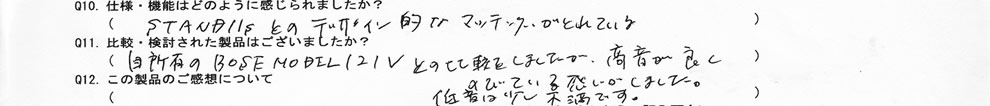 Q10. 仕様・機能はどのように感じられましたか?
( STANDIIsとのデザイン的なマッチングがとれている )
Q11. 比較・検討された製品はございましたか?
( 自所有のBOSE MODEL121Vとの比較をしましたが、高音が良く
Q12. この製品のご感想について
のびている感じがしました。
( 低音は少し不満です。 )